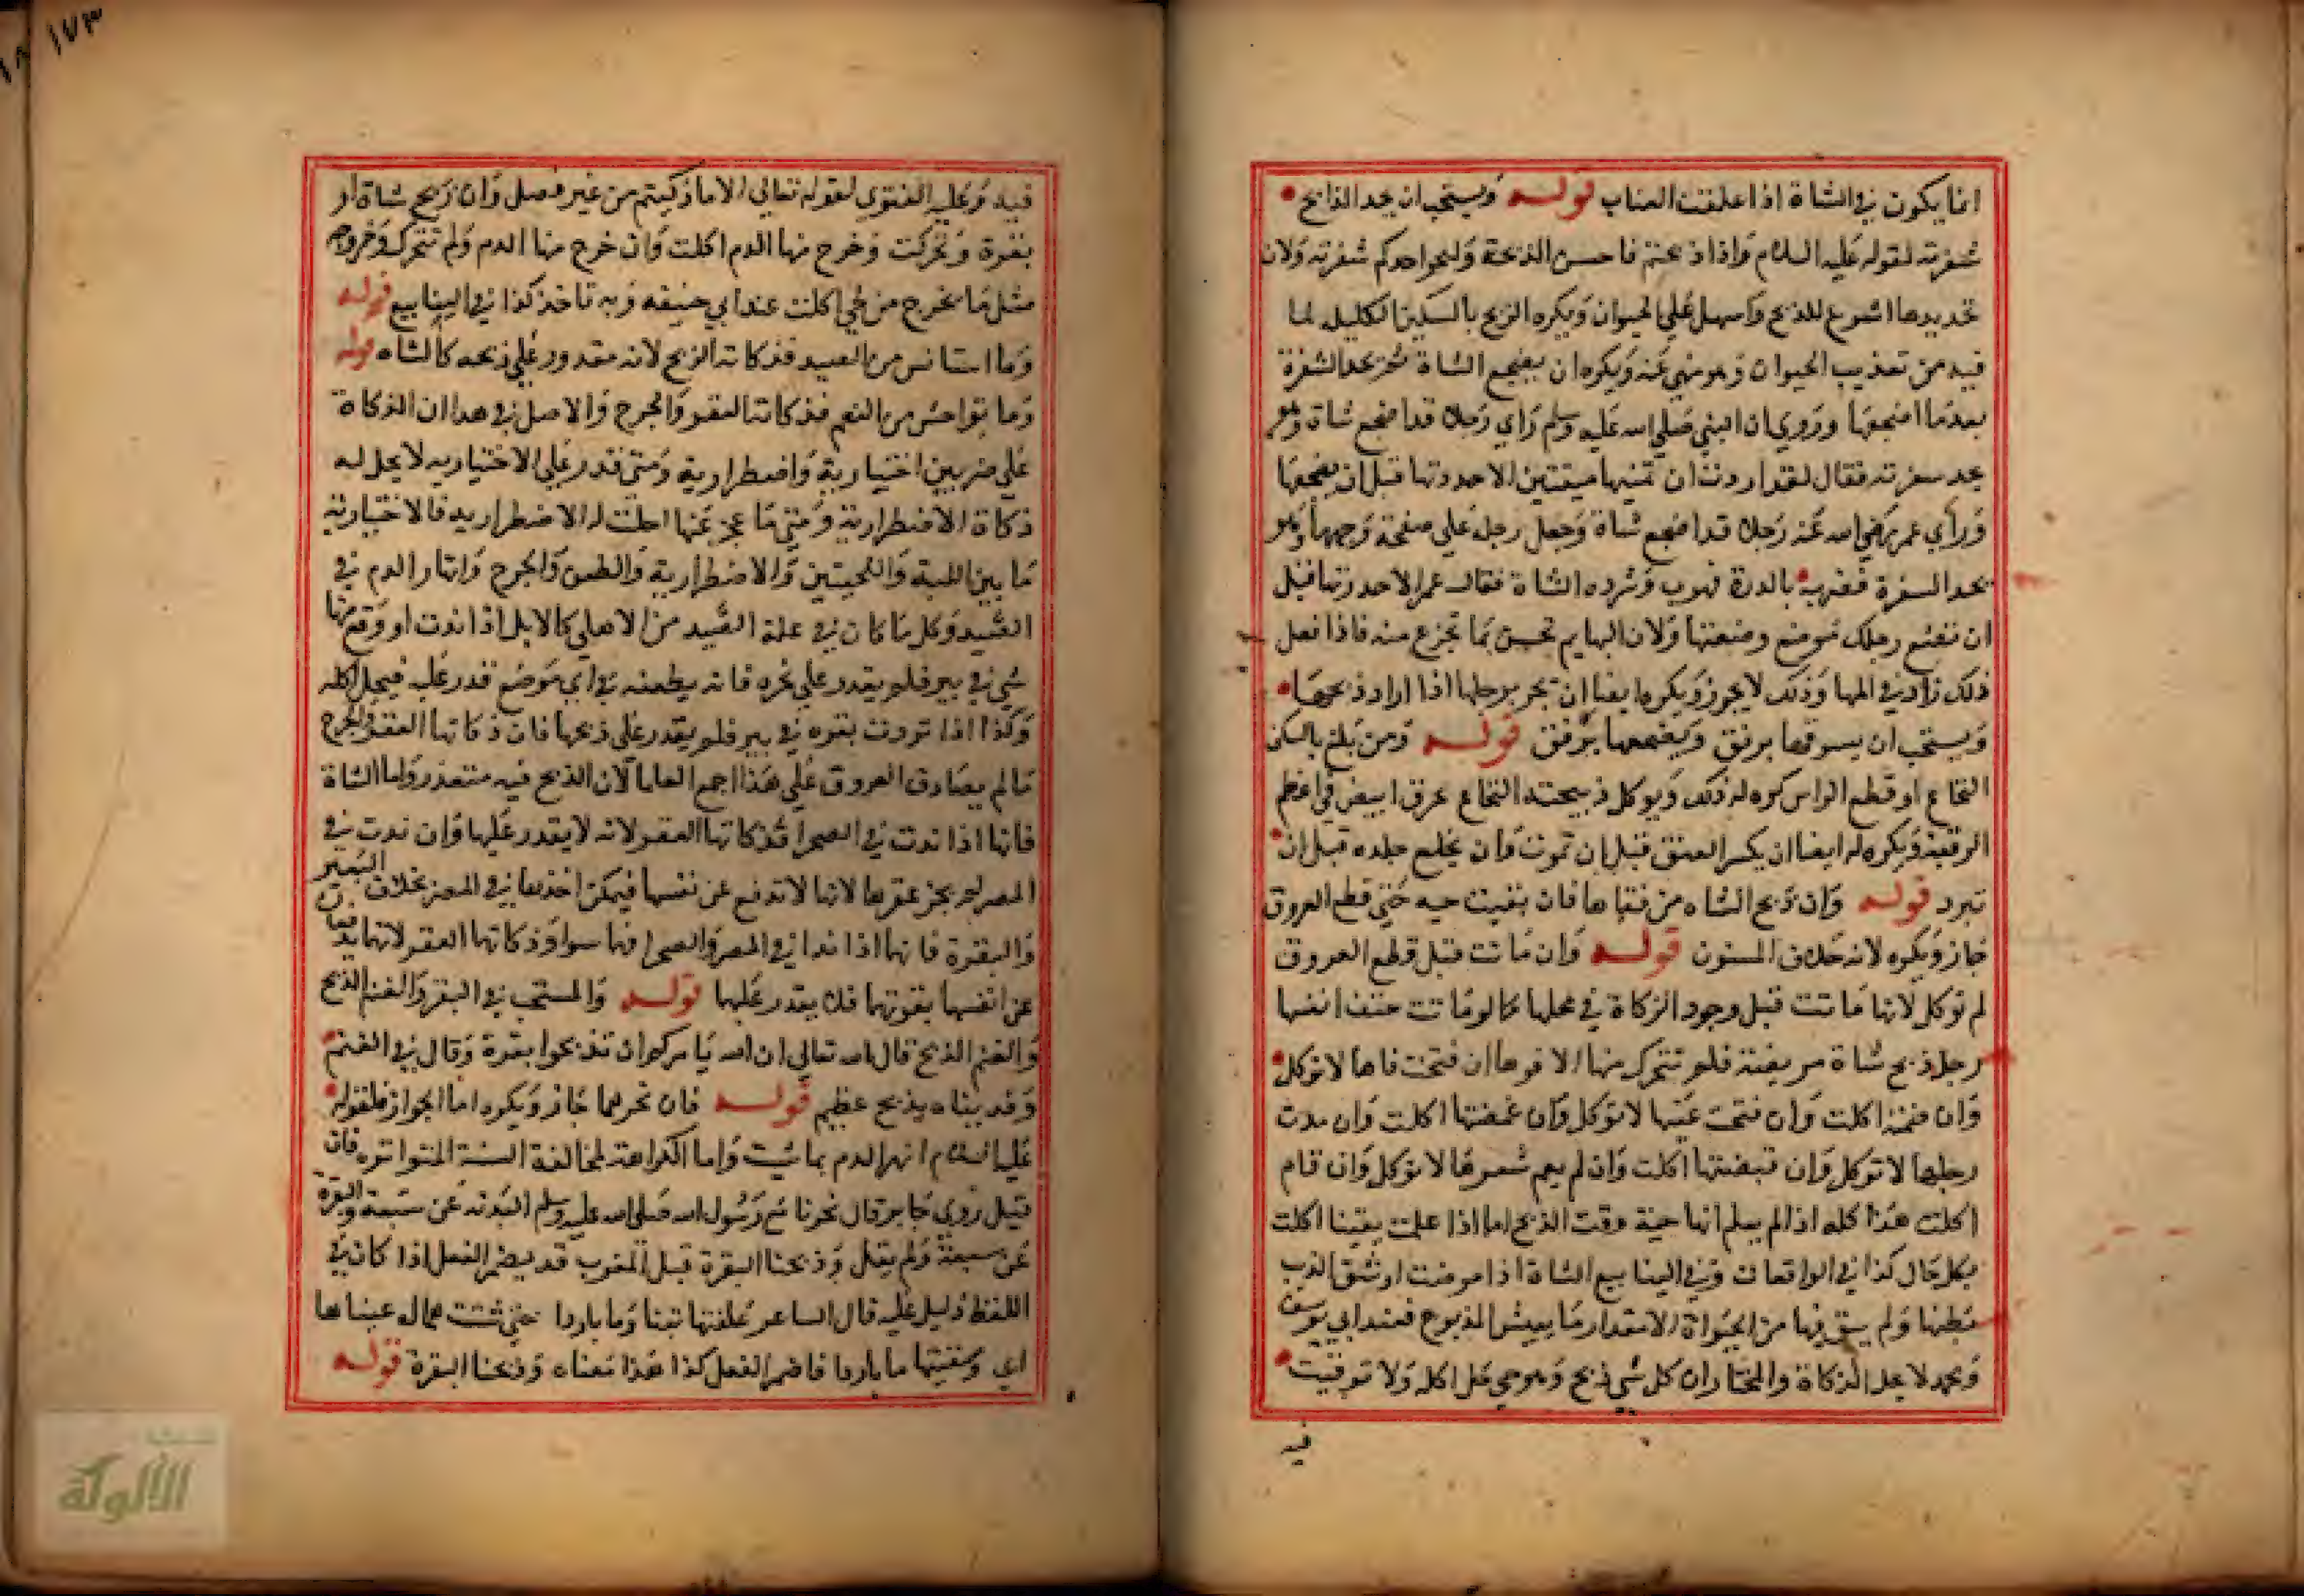 انما يكون في الشاة اذا علفت العناب قوله ويستحب ان يحد الذابح
شفرته لقوله عليه السلام واذا ذبحتم فاحسنوا الذبحة وليحد احدكم شفرته ولان
تحديدها اسرع للذبح واسهل على الحيوان ويكره الذبح بالسكين الكليل لما
فيه من تعذيب الحيوان وهو منهي عنه ويكره ان يضجع الشاة ثم يحد الشفرة
بعدما اضجعها وروي ان النبي صلى الله عليه وسلم راي رجلا قد اضجع شاة وهو
يحد سفرته فقال لقد اردت ان تميتها ميتتين الا حددتها قبل ان يضجعها
وراي عمر رضي الله عنه رجلا قد اضجع شاة وجعل رجله على صفحة وجهها وهو
يحد السفرة فضربه بالدرة فهرب وشرده الشاة فقال عمر الا حددتها قبل
ان تضع رجلك موضع وضعتها ولان البهايم تحس بما تجزع منه فاذا فعل
ذلك زاد في المها وذلك لا يجوز ويكره ايضا ان يجر برجلها اذا اراد ذبحها
ويستحب ان يسوقها برفق ويضجعها برفق قوله ومن بلغ بالسكين
النخاع او قطع الراس كره له ذلك ويوكل ذبيحته النخاع عرق ابيض في اعظم
الرقبة ويكره له ايضا ان يكسر العنق قبل ان تموت وان يخلع جلده قبل ان
تبرد قوله وان ذبح الشاه من قفاها فان بقيت حيه حتى قطع العروق
جاز ويكره لانه خلاف المسنون قوله وان ماتت قبل قطع العروق
لم توكل لانها ماتت قبل وجود الزكاة في محلها كما لو ماتت حتف انفسها
رجل ذبح شاة مريضة فلم تتحرك منها الا فوها ان فتحت فاها لا توكل
وان ضمته اكلت وان فتحت عينها لا توكل وان غمضتها اكلت وان مدت
رجلها لا توكل وان قبضتها اكلت وان لم يقم شعرها لا توكل وان قام
اكلت هذا كله اذا لم يعلم انها حية وقت الذبح اما اذا علمت يقينا اكلت
بكل حال كذا في الواقعات وفي الينابيع الشاة اذا مرضت او شق الذيب
بطنها ولم يبق فيها من الحيواة الا مقدار ما يعيش المذبوح فعند ابي يوسف
ومحمد لا يحل الذكاة والمختار ان كل شي ذبح وهو حي حل اكله ولا توقيت
فيه
١٧٣
فيه وعليه الفتوي لقوله تعالي الا ما ذكيتم من غير فصل وان ذبح شاة او
بقرة وتحركت وخرج منها الدم اكلت وان خرج منها الدم ولم تتحرك وخروجه
مثل ما يخرج من حي اكلت عند ابي حنيفه وبه ناخذ كذا في الينابيع قوله
وما استانس من الصيد فذكاته الذبح لانه مقدور على ذبحه كالشاه قوله
وما توحش من النعم فذكاتها العقر والجرح والاصل في هذا ان الذكاة
على ضربين اختيارية واضطرارية ومتى قدر على الاختياريه لا يحل له
ذكاة الاضطرارية ومتى ما عجز عنها احلت له الاضطراريه فالاختيارية
ما بين اللبة واللحيتين والاضطرارية والطعن والجرح وانهار الدم في
الصيد وكل ما كان في علة الصيد من الاهلي كالابل اذا ندت او وقع منها
شي في بير فلم يقدر على نحره فانه يطعنه في اي موضع قدر عليه فيحل اكله
وكذا اذا تردت بقره في بير فلم يقدر على ذبحها فان ذكاتها العقر والجرح
ما لم يصادف العروق على هذا اجمع العلما لان الذبح فيه متعذر واما الشاة
فانها اذا ندت في الصحرا فذكاتها العقر لانه لا يقدر عليها وان ندت في
المصر لم يجز عقرها لانها لا تدفع عن نفسها فيمكن اخذها في المصر بخلاف البعير
والبقرة فانهما اذا ندا في المصر والصحرا فهما سوا وذكاتها العقر لانهما يدفعان
عن انفسهما بقوتهما فلا يقدر عليهما قوله والمستحب في البقر والغنم الذبح
والغنم الذبح قال الله تعالي ان الله يامركم ان تذبحوا بقرة وقال في الغنم
وفديناه بذبح عظيم قوله فان نحرهما جاز ويكره اما الجواز فلقوله
عليه السلام انهر الدم بما شيت واما الكراهة لمخالفة السنة المتواتره فان
قيل روي جابر قال نحرنا مع رسول الله صلى الله عليه وسلم البدنه عن سبعة والبقرة
عن سبعة ولم يقل وذبحنا البقرة قبل المغرب قد يضمر الفعل اذا كان في
اللفظ دليل عليه قال الساعر علفتها تبنا وما باردا حتى شتت همالة عيناها
اي وسقيتها ما باردا فاضمر الفعل كذا هذا معناه وذبحنا البقرة قوله
الألوكة